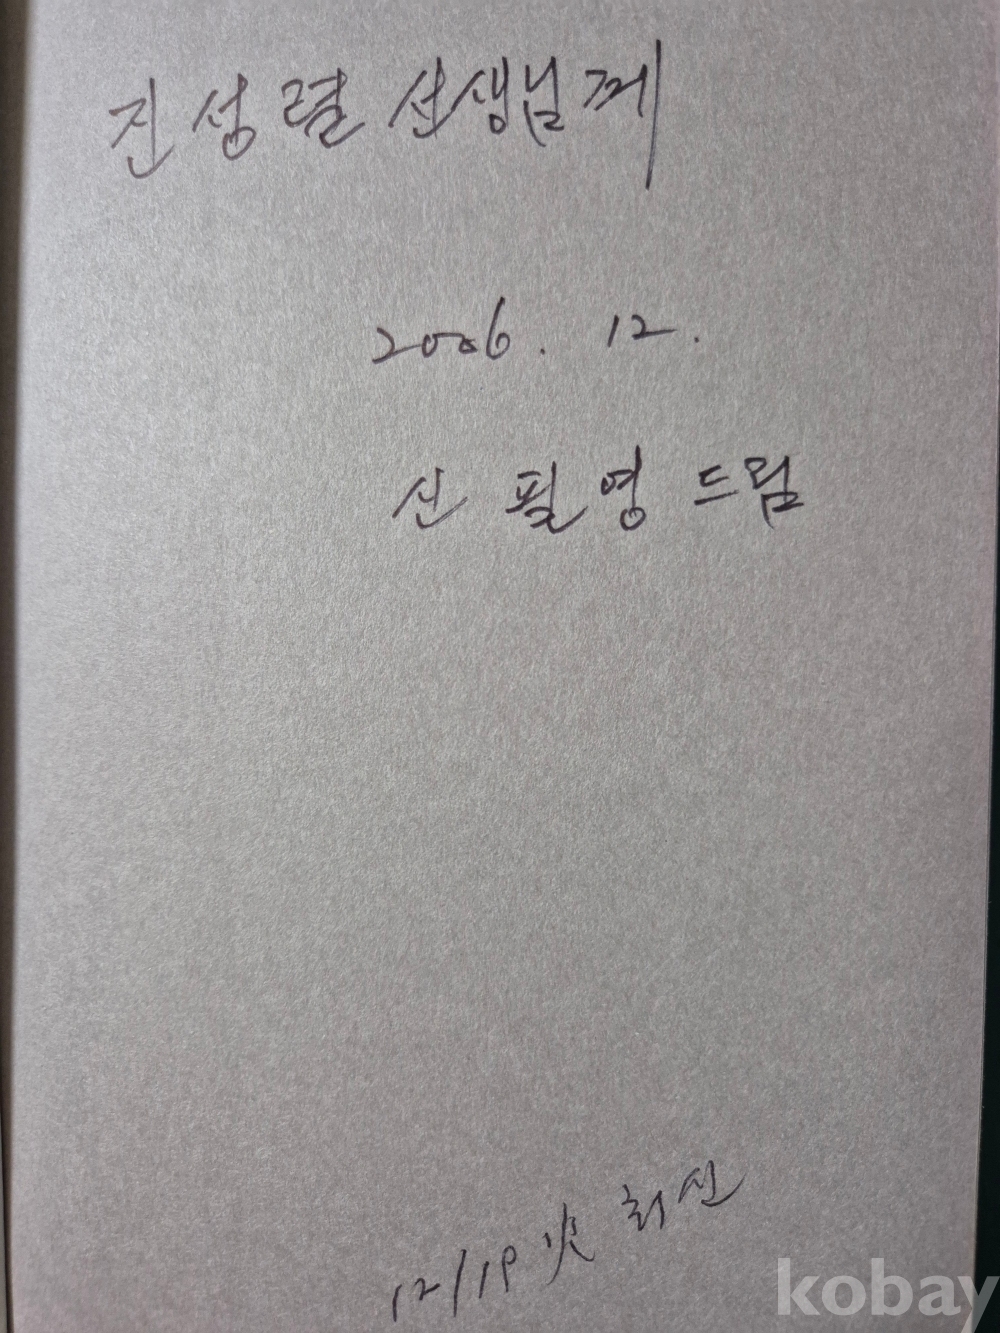 진성렬 선생님께
2006. 12.
신필영 드림
12/19 火 회신
kobay